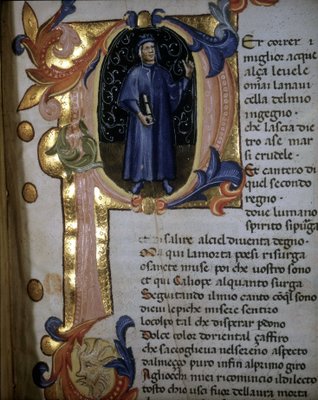 PEr correr i
miglior acque
alça leuele
omai lanaui
cella delmio
ingegno.
che lascia die
tro ase mar
si crudele.
Et cantero di
quel secondo
regno.
doue lumano
spirito sipurga
et disalire alciel diuenta degno.
Ma qui lamorta poesi risurga
osancte muse poi che uostro sono
et qui Caliope alquanto surga
Seguitando ilmio canto cõql sono
dicui lepiche misere sentiro
locolpo tal che disperar pdono
Dolce color doriental çaffiro
che sacoglieua nelsereno aspecto
dalmeçço puro infin alprimo giro
Agliocchi miei ricomincio ildilecto
tosto chio usci fuor dellaura morta